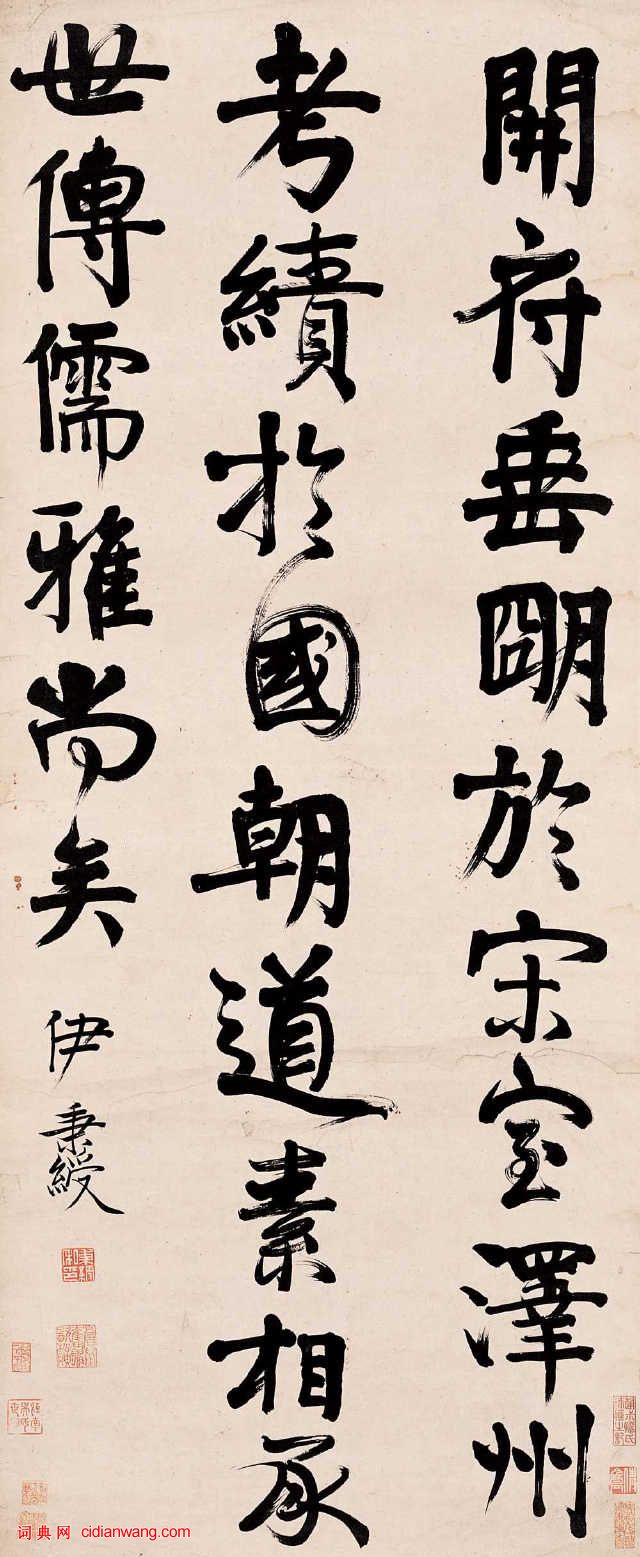 開府垂朙於宋室澤州
考績於國朝道素相承
世傳儒雅尚矣
伊秉綬
词典网 cidianwang.com